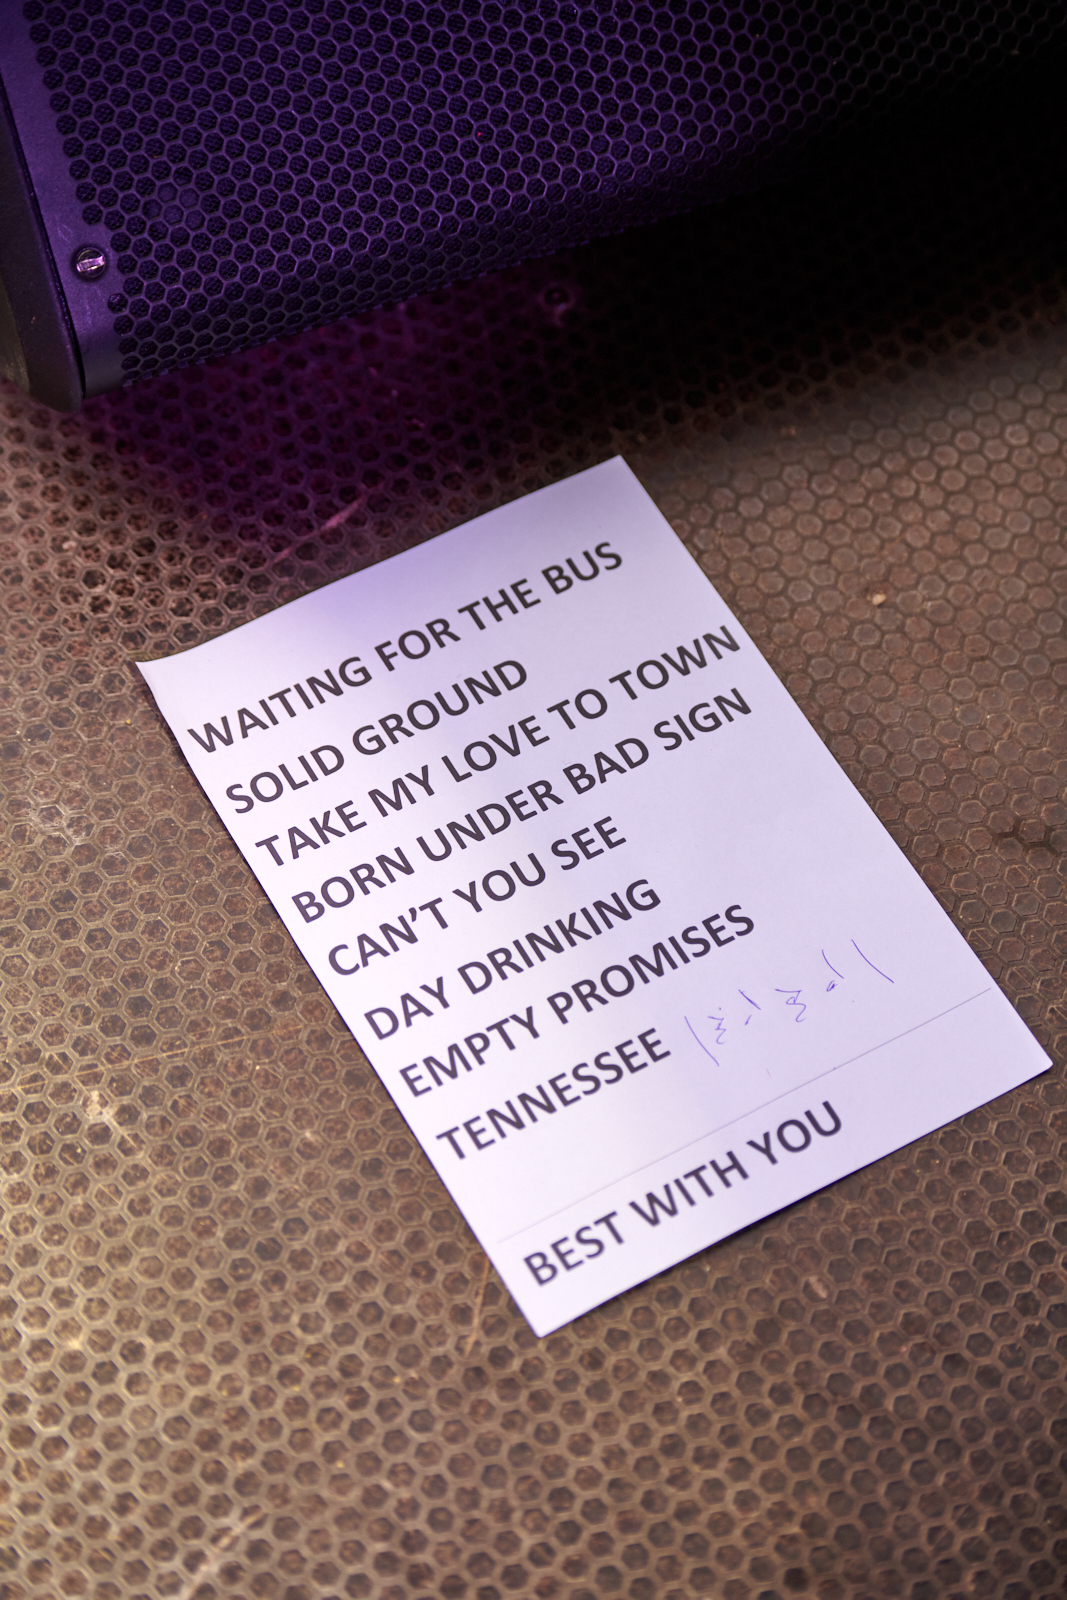 WAITING FOR THE BUS
SOLID GROUND
TAKE MY LOVE TO TOWN
BORN UNDER BAD SIGN
CAN’T YOU SEE
DAY DRINKING
EMPTY PROMISES
TENNESSEE
BEST WITH YOU